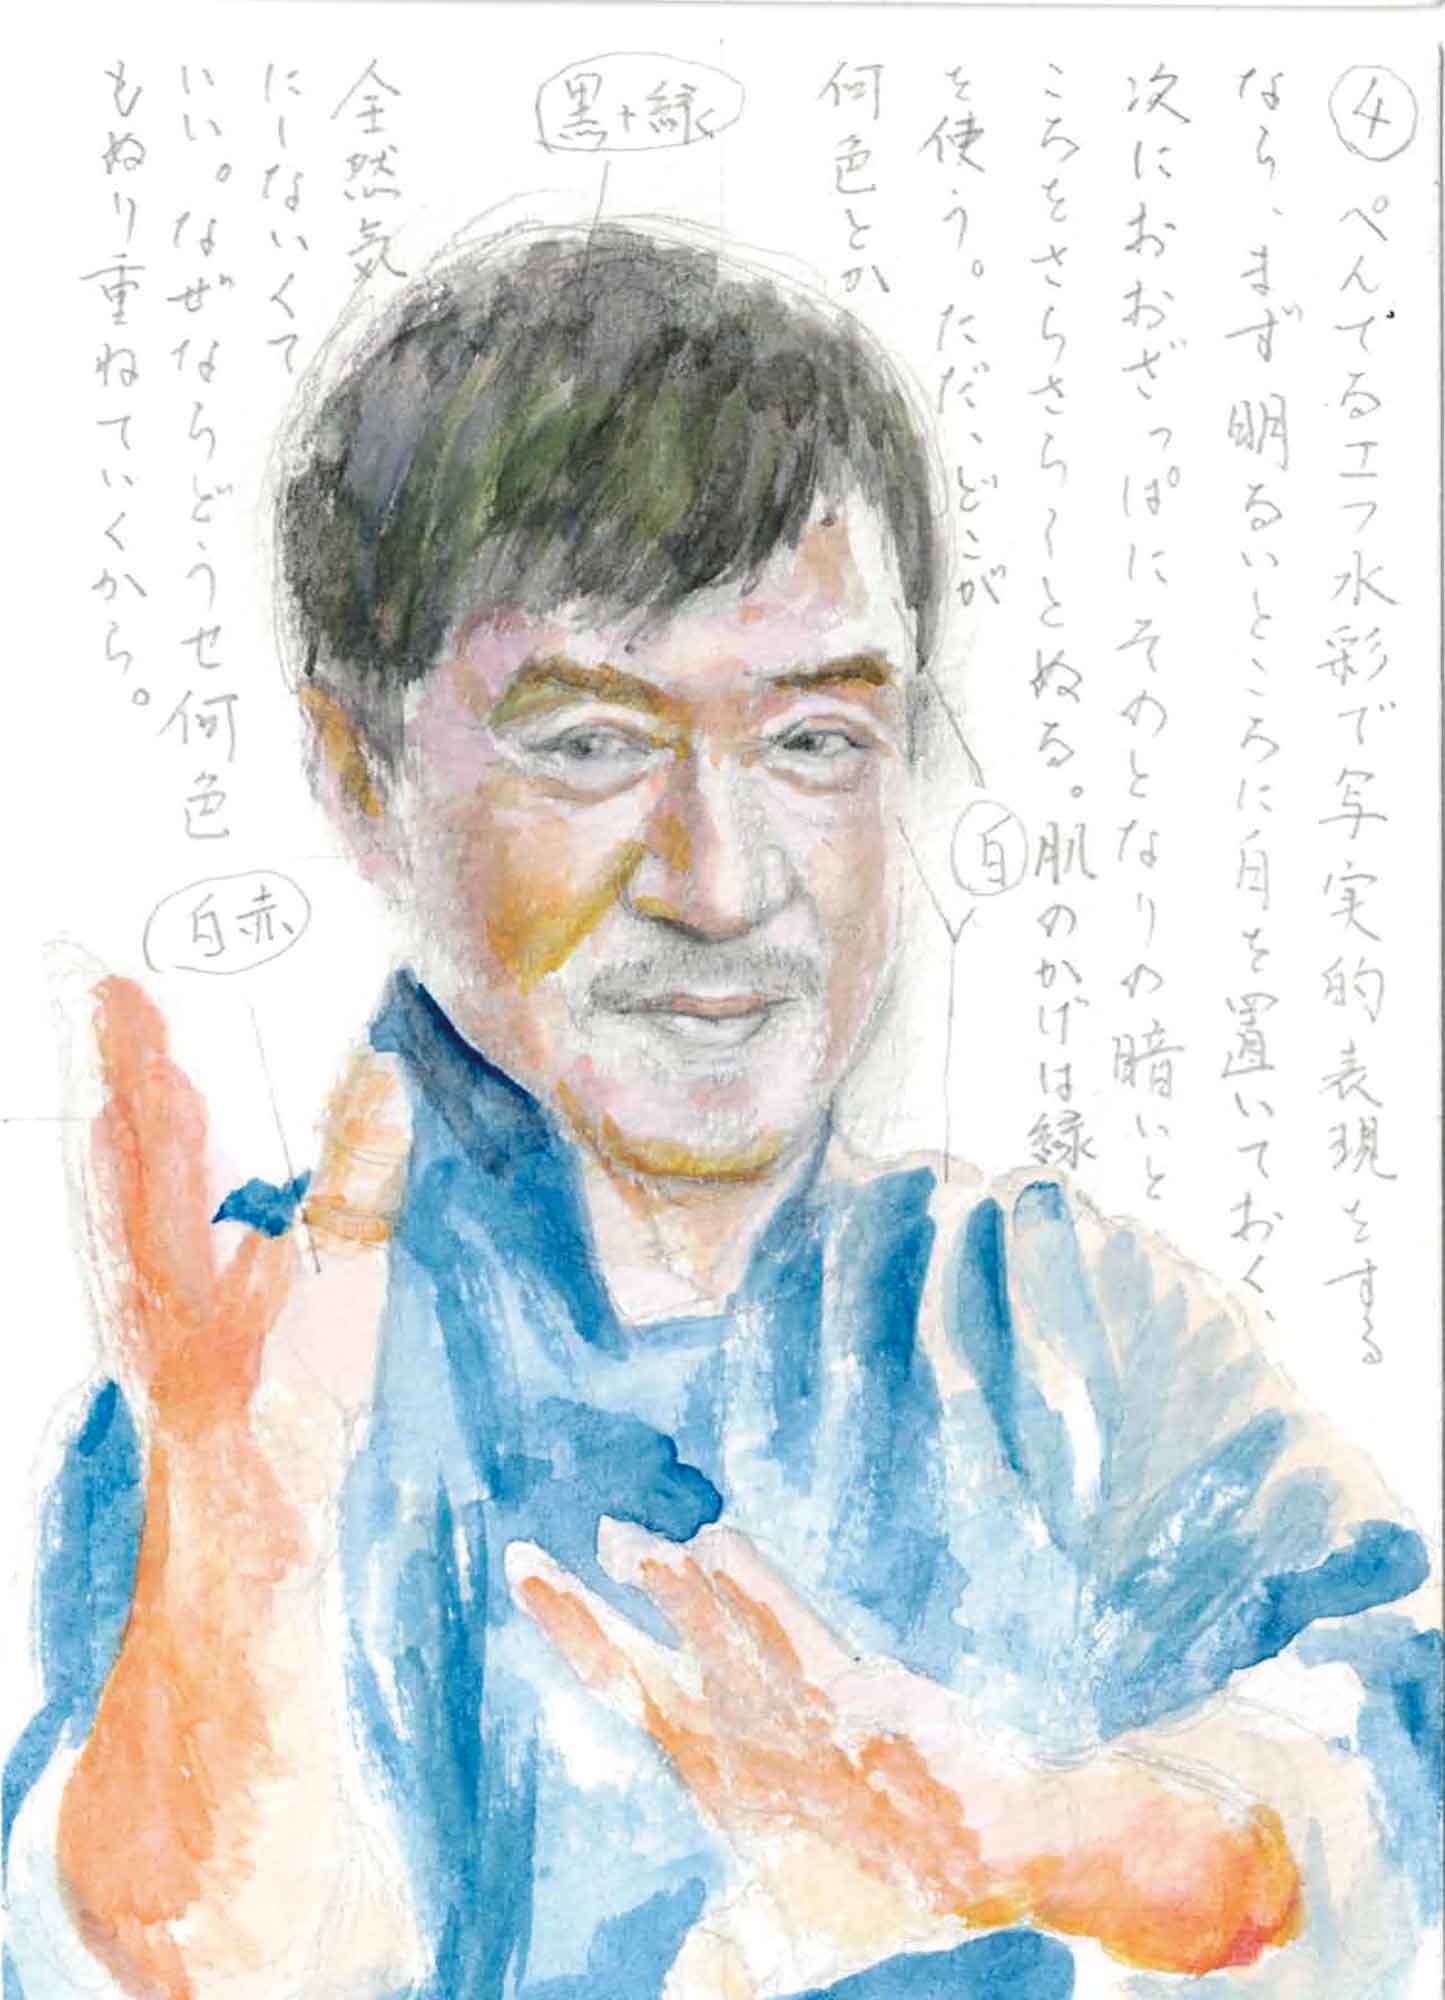 ④ぺんてるエフ水彩で写実的表現をする
なら、まず明るいところに白を置いておく、
次におおざっぱにそのとなりの暗いと
ころをさらさらーとぬる。肌のかげは緑
を使う。ただ、どこが
何色とか
全然気
にしないくて
いい。なぜならどうせ何色
もぬり重ねていくから。
黒+緑
白
白赤